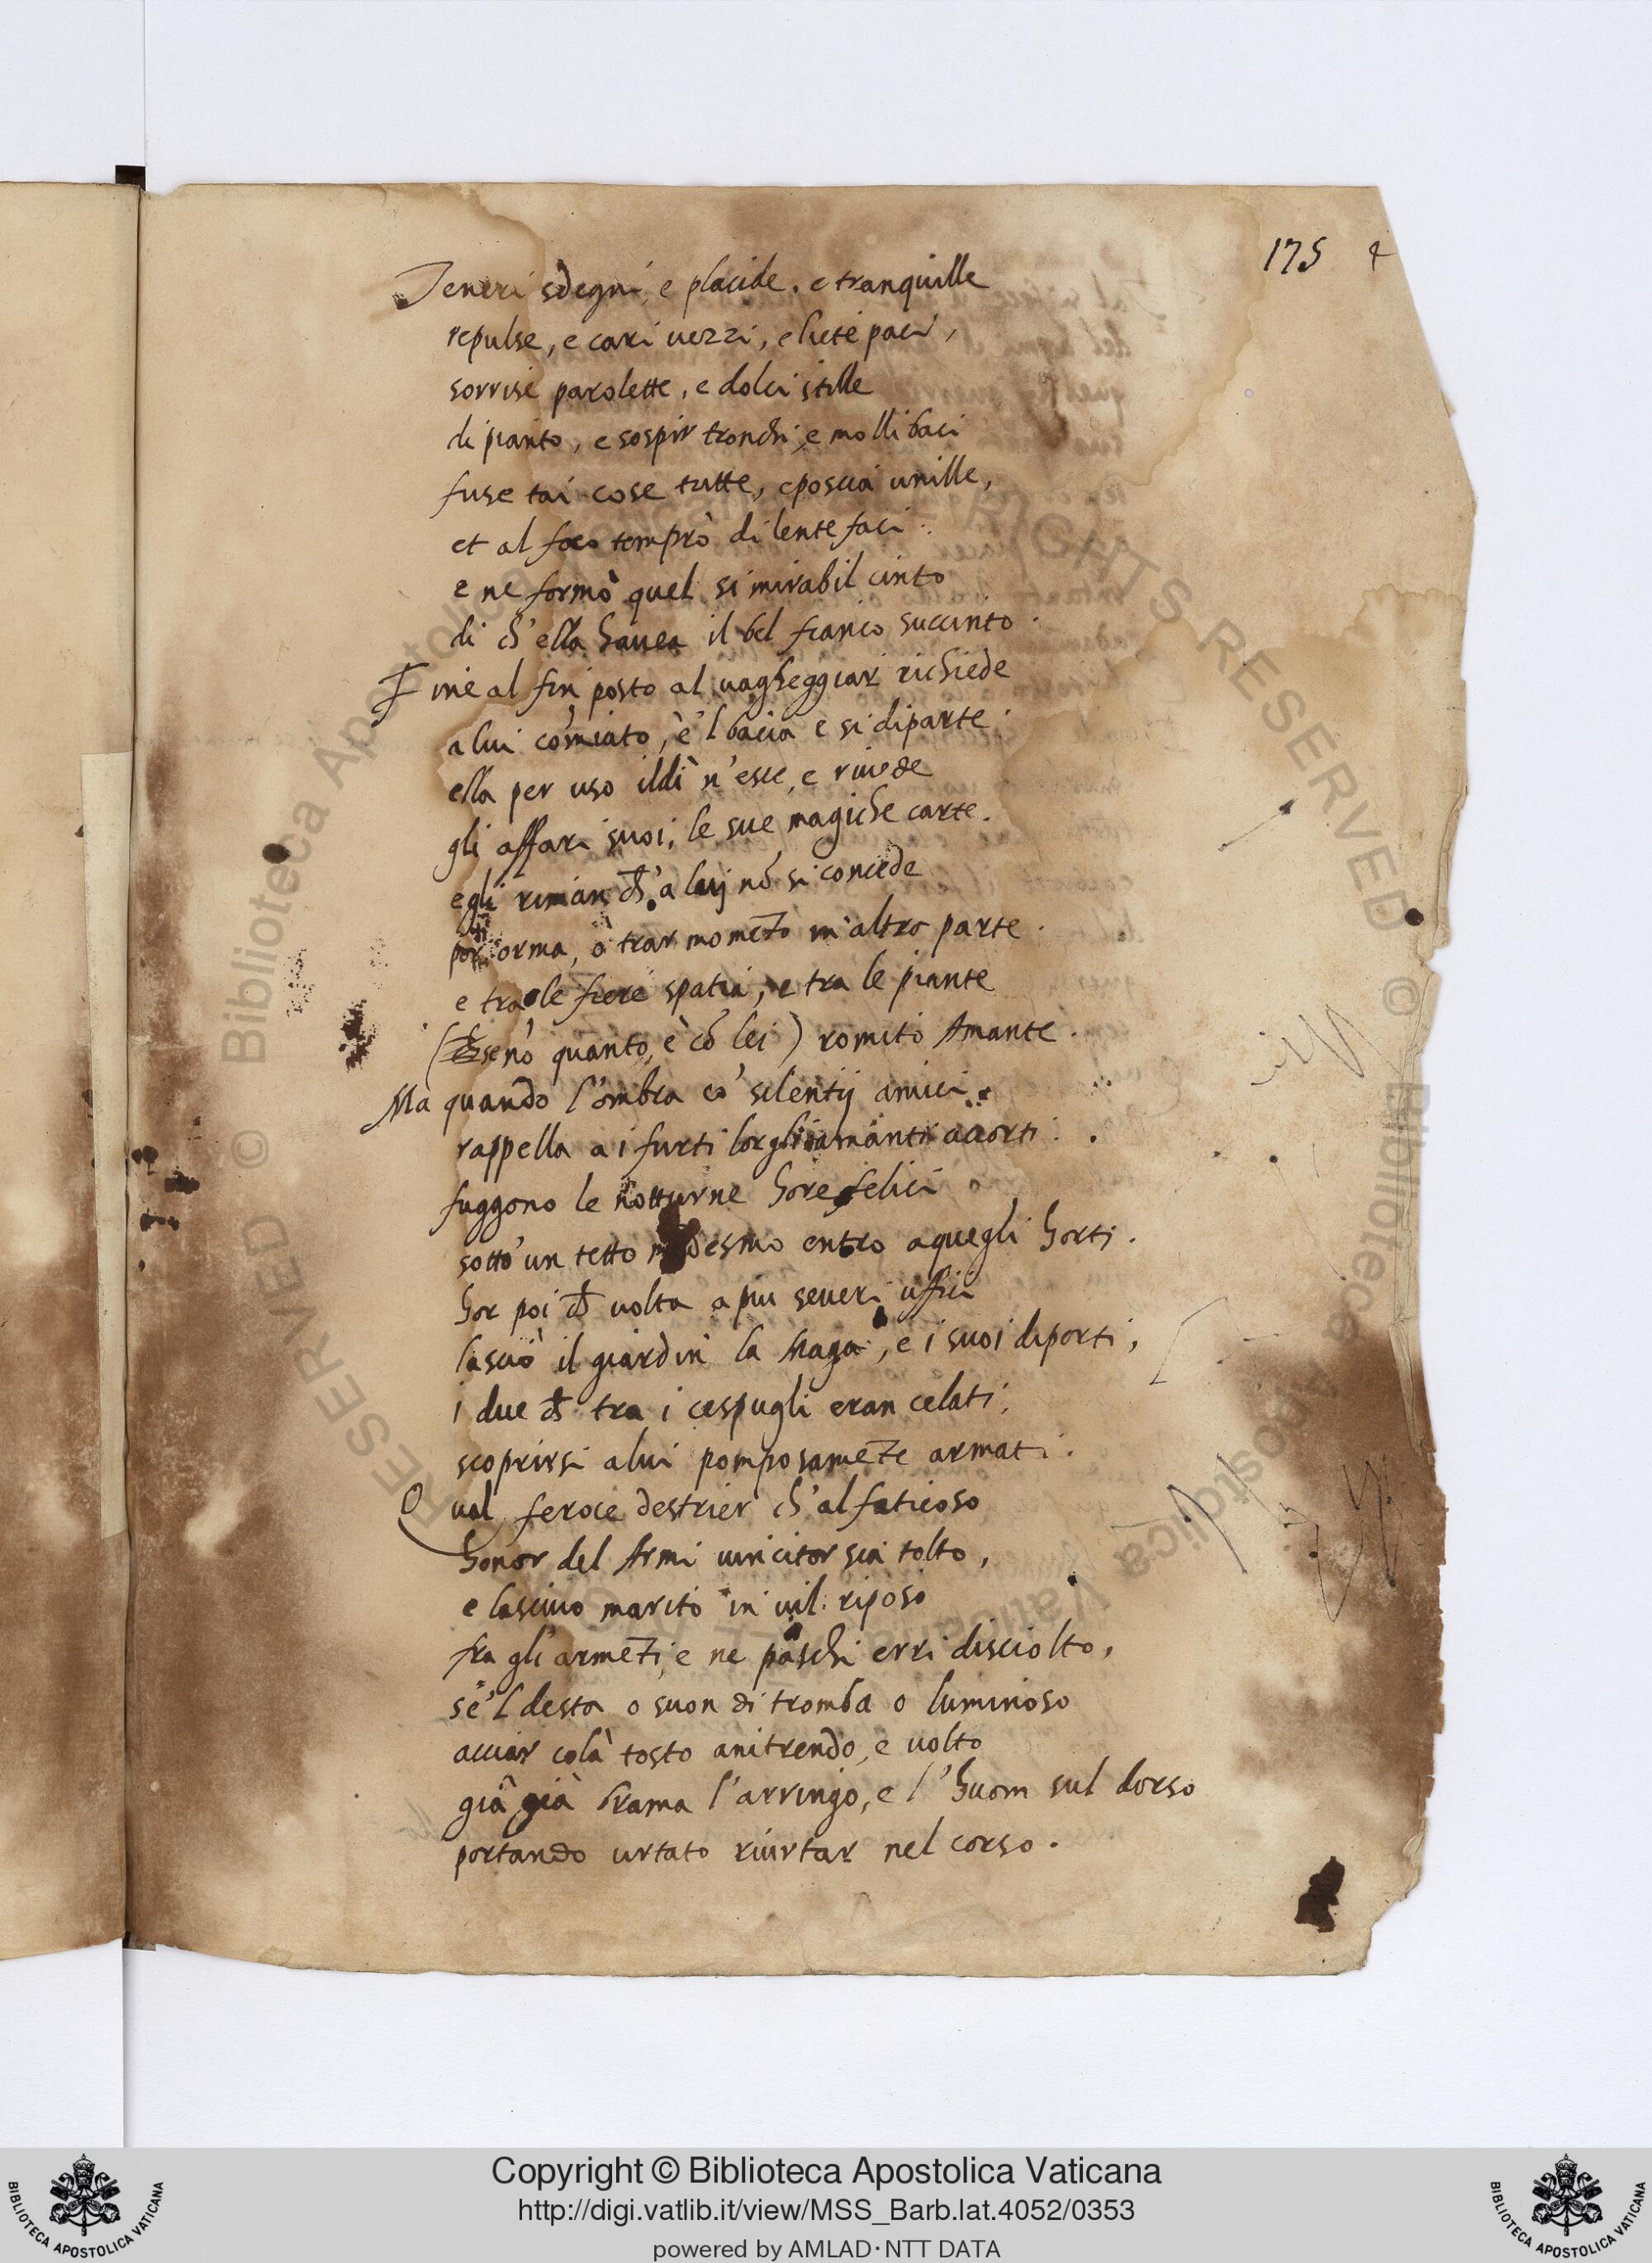 175 4
Teneri sdegni, e placide, e tranquille
repulse, e cari uezzi, e liete paci,
sorrisi parolette, e dolci stille
di pianto, e sospir tronchi, e molli baci
fuse tai cose tutte, e poscia unille,
et al foco temprò di lente faci.
e ne formò quel si mirabil cinto
di ch'ella hauea il bel fianco succinto.
Fine al fin posto al uagheggiar richiede
a lui comiato, e 'l bacia e si diparte.
ella per uso il dì n'esce, e riuede
gli affari suoi, le sue magiche carte.
egli riman ch'a lui nō si concede
por orma, o trar momēto in altra parte.
e tra le fiere spatia, e tra le piante
(se nō quanto è cō lei) romito Amante.
Ma quando l'ombra co' silentij amici
rappella a i furti lor gli amanti accorti.
fuggono le notturne hore felici
sotto un tetto medesmo entro a quegli horti.
hor poi ch̄ uolta a piu seueri uffici
lasciò il giardin la Maga, e i suoi diporti,
i due ch̄ tra i cespugli eran celati,
scoprirsi a lui pomposamēte armati.
Qual feroce destrier ch'al faticoso
honor del Armi uincitor sia tolto,
e lasciuo marito in uil riposo
fra gli armēti, e ne paschi erri disciolto,
se 'l desta o suon di tromba o luminoso
acciar colà tosto anitrendo, è uolto
già già brama l'arringo, e l'huom sul dorso
portando urtato riurtar nel corso.
RESERVED © Biblioteca Apostolica Vaticana
RIGHTS RESERVED © Biblioteca Apostolica Vaticana
BIBLIOTECA APOSTOLICA VATICANA
Copyright © Biblioteca Apostolica Vaticana
http://digi.vatlib.it/view/MSS_Barb.lat.4052/0353
powered by AMLAD·NTT DATA
BIBLIOTECA APOSTOLICA VATICANA